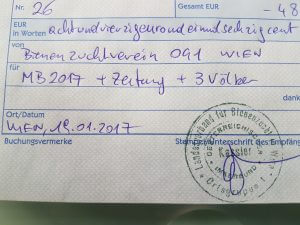 Nr. 26 Gesamt EUR -48
EUR in Worten achtundvierzigeuround einundsechzigcent
von Bienenzuchtverein 091 WIEN
für MB2017 + Zeitung + 3 Völker
Ort/Datum
WIEN, 19.01.2017
Buchungsvermerke Stempel/Unterschrift des Empfängers
Landesverband für Bienenzucht
Kassier
Ortsgruppe